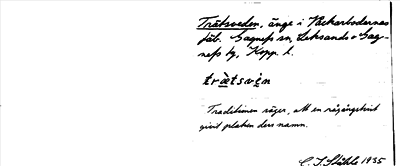 Trätsveden, änge i Västerbodernas
fäb. Gagnefs sn, Leksands o Gag-
nefs tg, Kopp. l.
trætsve̱n
Traditionen säger, att en rågångstvist
givit platsen dess namn.
C. I. Ståhle 1935